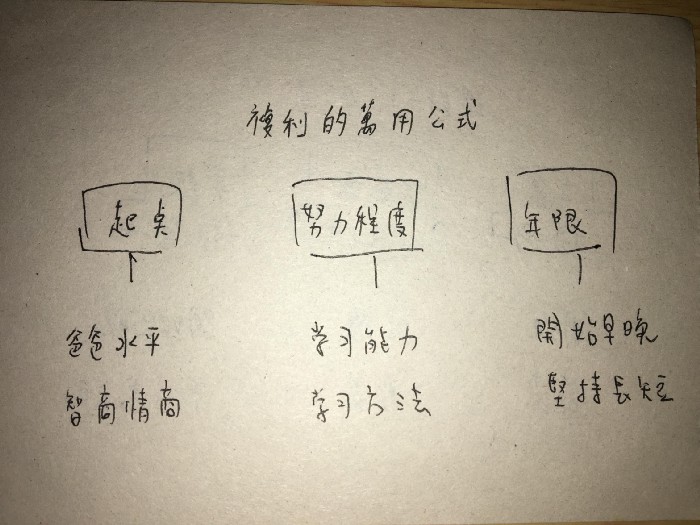 複利的萬用公式
起点 努力程度 年限
爸爸水平 学习能力 開始早晚
智商情商 学习方法 堅持長短